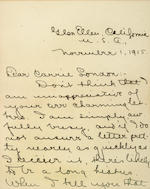 Glen Ellen, California
U. S. A.
November 1, 1915.
Dear Carrie London:
Don't think that I
am unappreciative of
your charming letters
I am simply aw
fully busy, and if I do
not answer letters pret
ty nearly as quickly as
I receive is, there's likely
to be a long hiatus.
When I tell you that